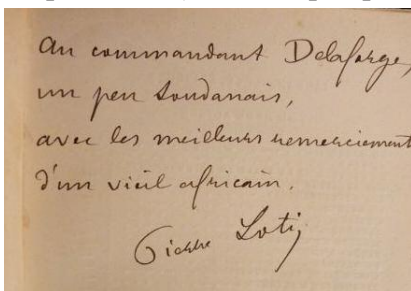 Au commandant Delaforge,
un peu Soudanais,
avec les meilleurs remerciement
d'un vieil africain.
Pierre Loti